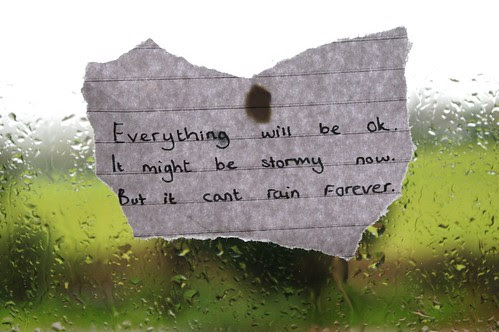 Everything will be ok.
It might be stormy now.
But it cant rain Forever.